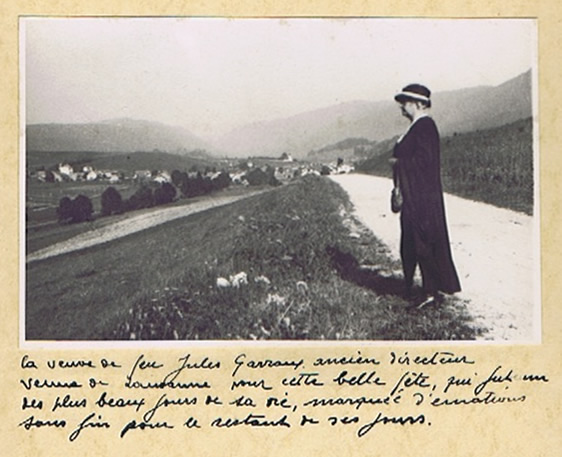 la veuve de feu Jules Garraux, ancien directeur
venue de Lausanne pour cette belle fête, qui fut un
des plus beaux jours de sa vie, marquée d'émotions
sans fin pour le restant de ses jours.